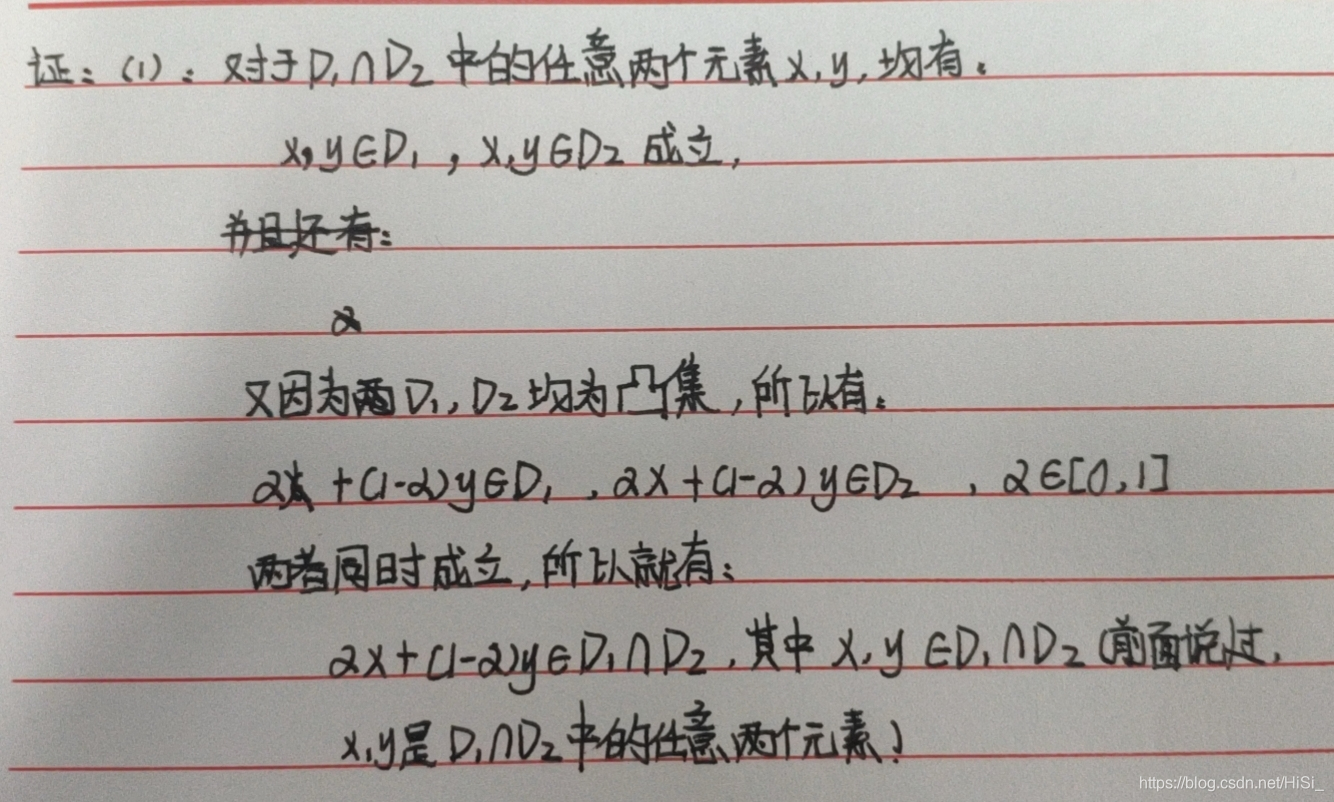 证：(1)：对于D₁∩D₂中的任意两个元素x,y,均有。
x,y∈D₁，x,y∈D₂成立,
并且还有：
α
又因为两D₁,D₂均为凸集,所以有。
αx+(1-α)y∈D₁，αx+(1-α)y∈D₂，α∈[0,1]
两者同时成立,所以就有：
αx+(1-α)y∈D₁∩D₂,其中x,y∈D₁∩D₂(前面说过,
x,y是D₁∩D₂中的任意两个元素)
https://blog.csdn.net/HiSi_